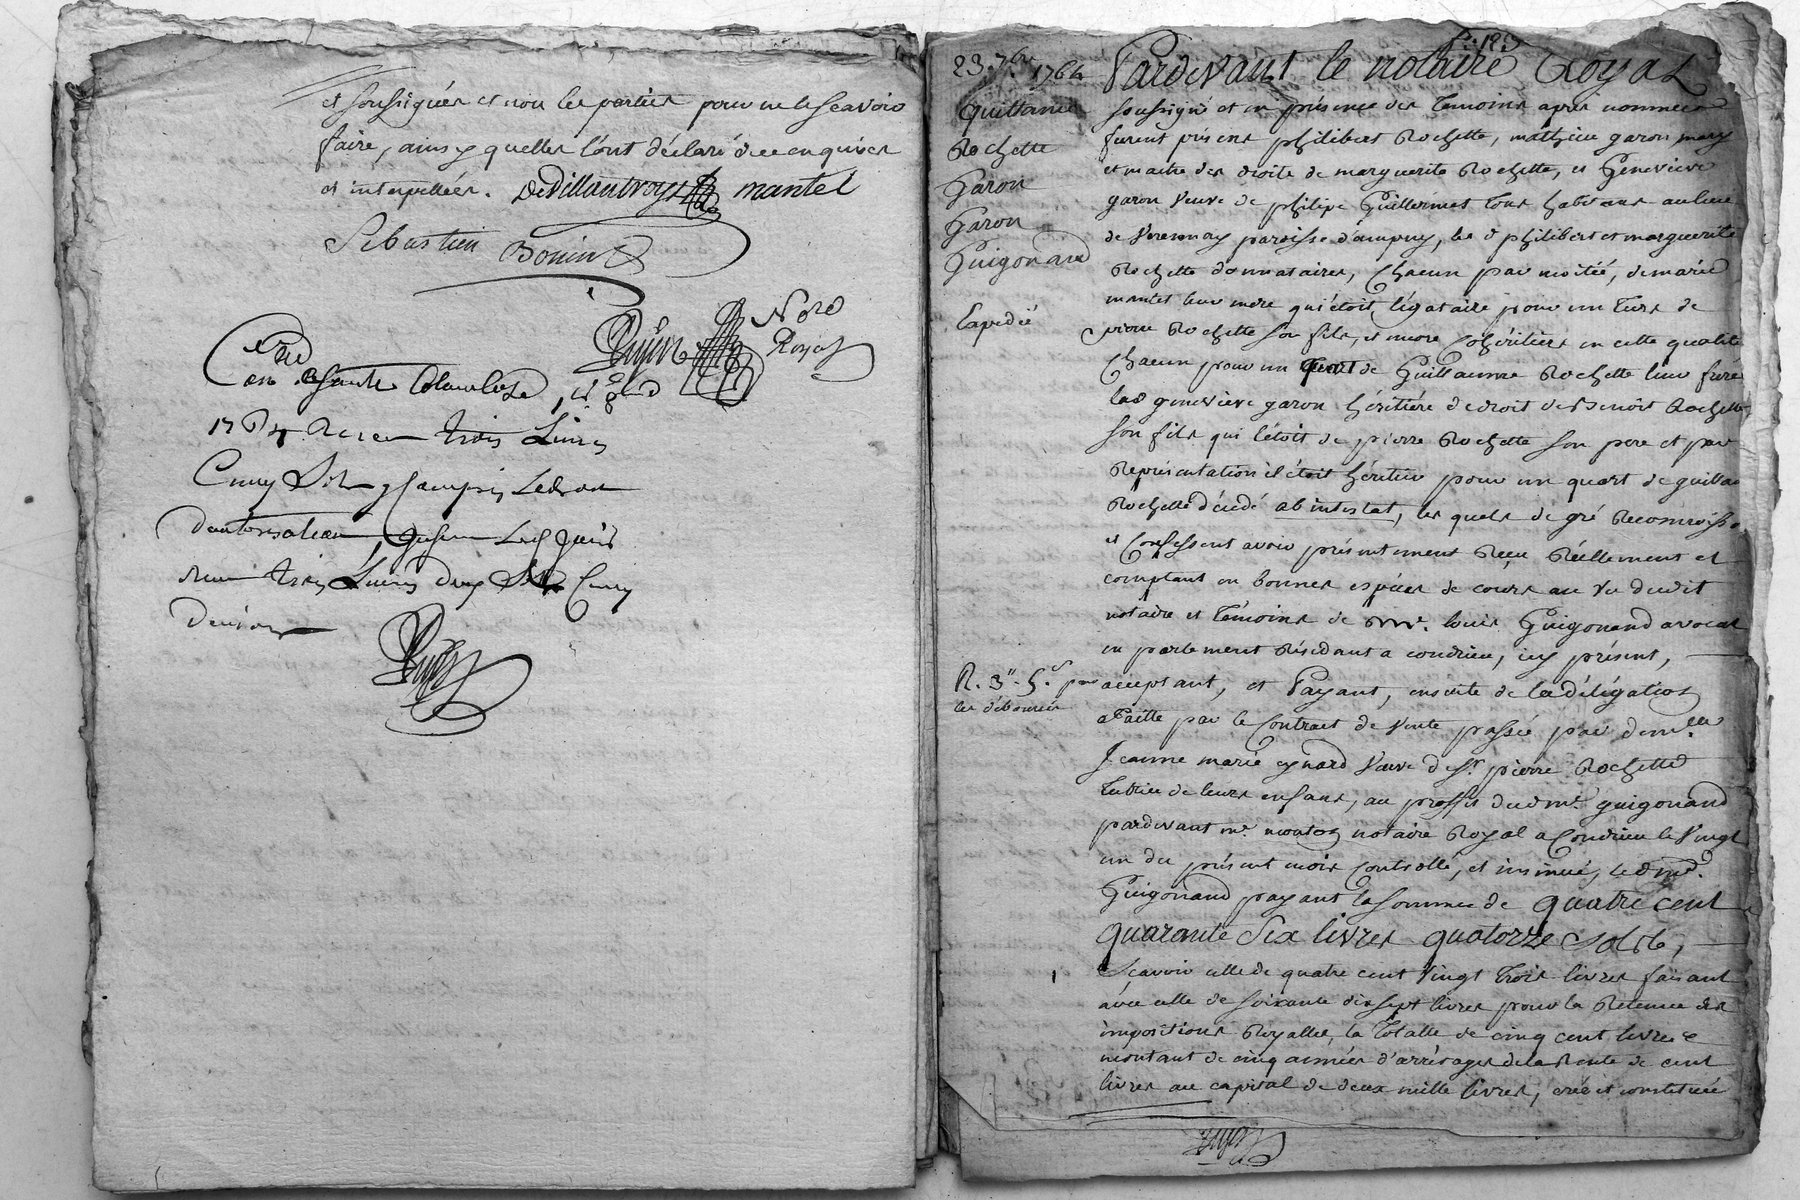 et soussignées et non les parties pour ne le scavoir
faire, ainsy quelles l'ont déclaré de ce enquises
et interpellées. DeVillantroys mantel
Sebastien Bonin
Nore
Royal
Con. a Sainte Colombe, le
1764 Receu trois Livres
Cinq Sols y Compris Le droit
d'autorisation
trois Livres deux Sols Cinq
deniers
P. 129
23. 7bre 1764
quittance
Rochette
Garon
Garon
Guigonand
Expedié
R. 3" 5.s pour
les débourcés
Pardevant le notaire Royal
soussigné et en présence des temoins apres nommés
furent présens philibert Rochette, mathieu garon mary
et maitre des droits de marguerite Rochette, et Geneviève
garon veuve de philipe Guillermet tous habitans au lieu
de Verennay paroisse d'ampuy, les d philibert et marguerite
Rochette donnataires, chacun par moitié, de marie
mantel leur mere qui étoit légataire pour un tiers de
pierre Rochette son fils, et encore cohéritiers en cette qualité
chacun pour un quart de Guillaume Rochette leur frère
lad genevieve garon héritière de droit de Benoit Rochette
son fils qui l'étoit de pierre Rochette son pere et par
représentation il étoit héritier pour un quart de guillau
Rochette décédé ab intestat, les quels de gré Reconnoisse
et Confessent avoir présentement Reçu Réellement et
comptant en bonnes espéces de cours au vu dudit
notaire et temoins de mre. louis Guigonand avocat
en parlement Résidant a condrieu, icy présent,
acceptant, et Payant, ensuite de la délégation
a Faitte par le Contract de vente passée par demlle
Jeanne marie eynard Veuve de sr. pierre Rochette
tutrice de leurs enfans, au proffit dud mre guigonand
pardevant me. monton notaire Royal a Condrieu le vingt
un du présent mois controllé, et insinué, led mre.
Guigonand payant la somme de quatre cent
quarante Six livres quatorze sols,
Scavoir celle de quatre cent vingt trois livres faisant
avec celle de soixante dix sept livres pour la Retenue des
impositions Royalles, la totalle de cinq cent livres
montant de cinq années d'arrérages de la Rente de cent
livres au capital de deux mille livres, créé et constituée